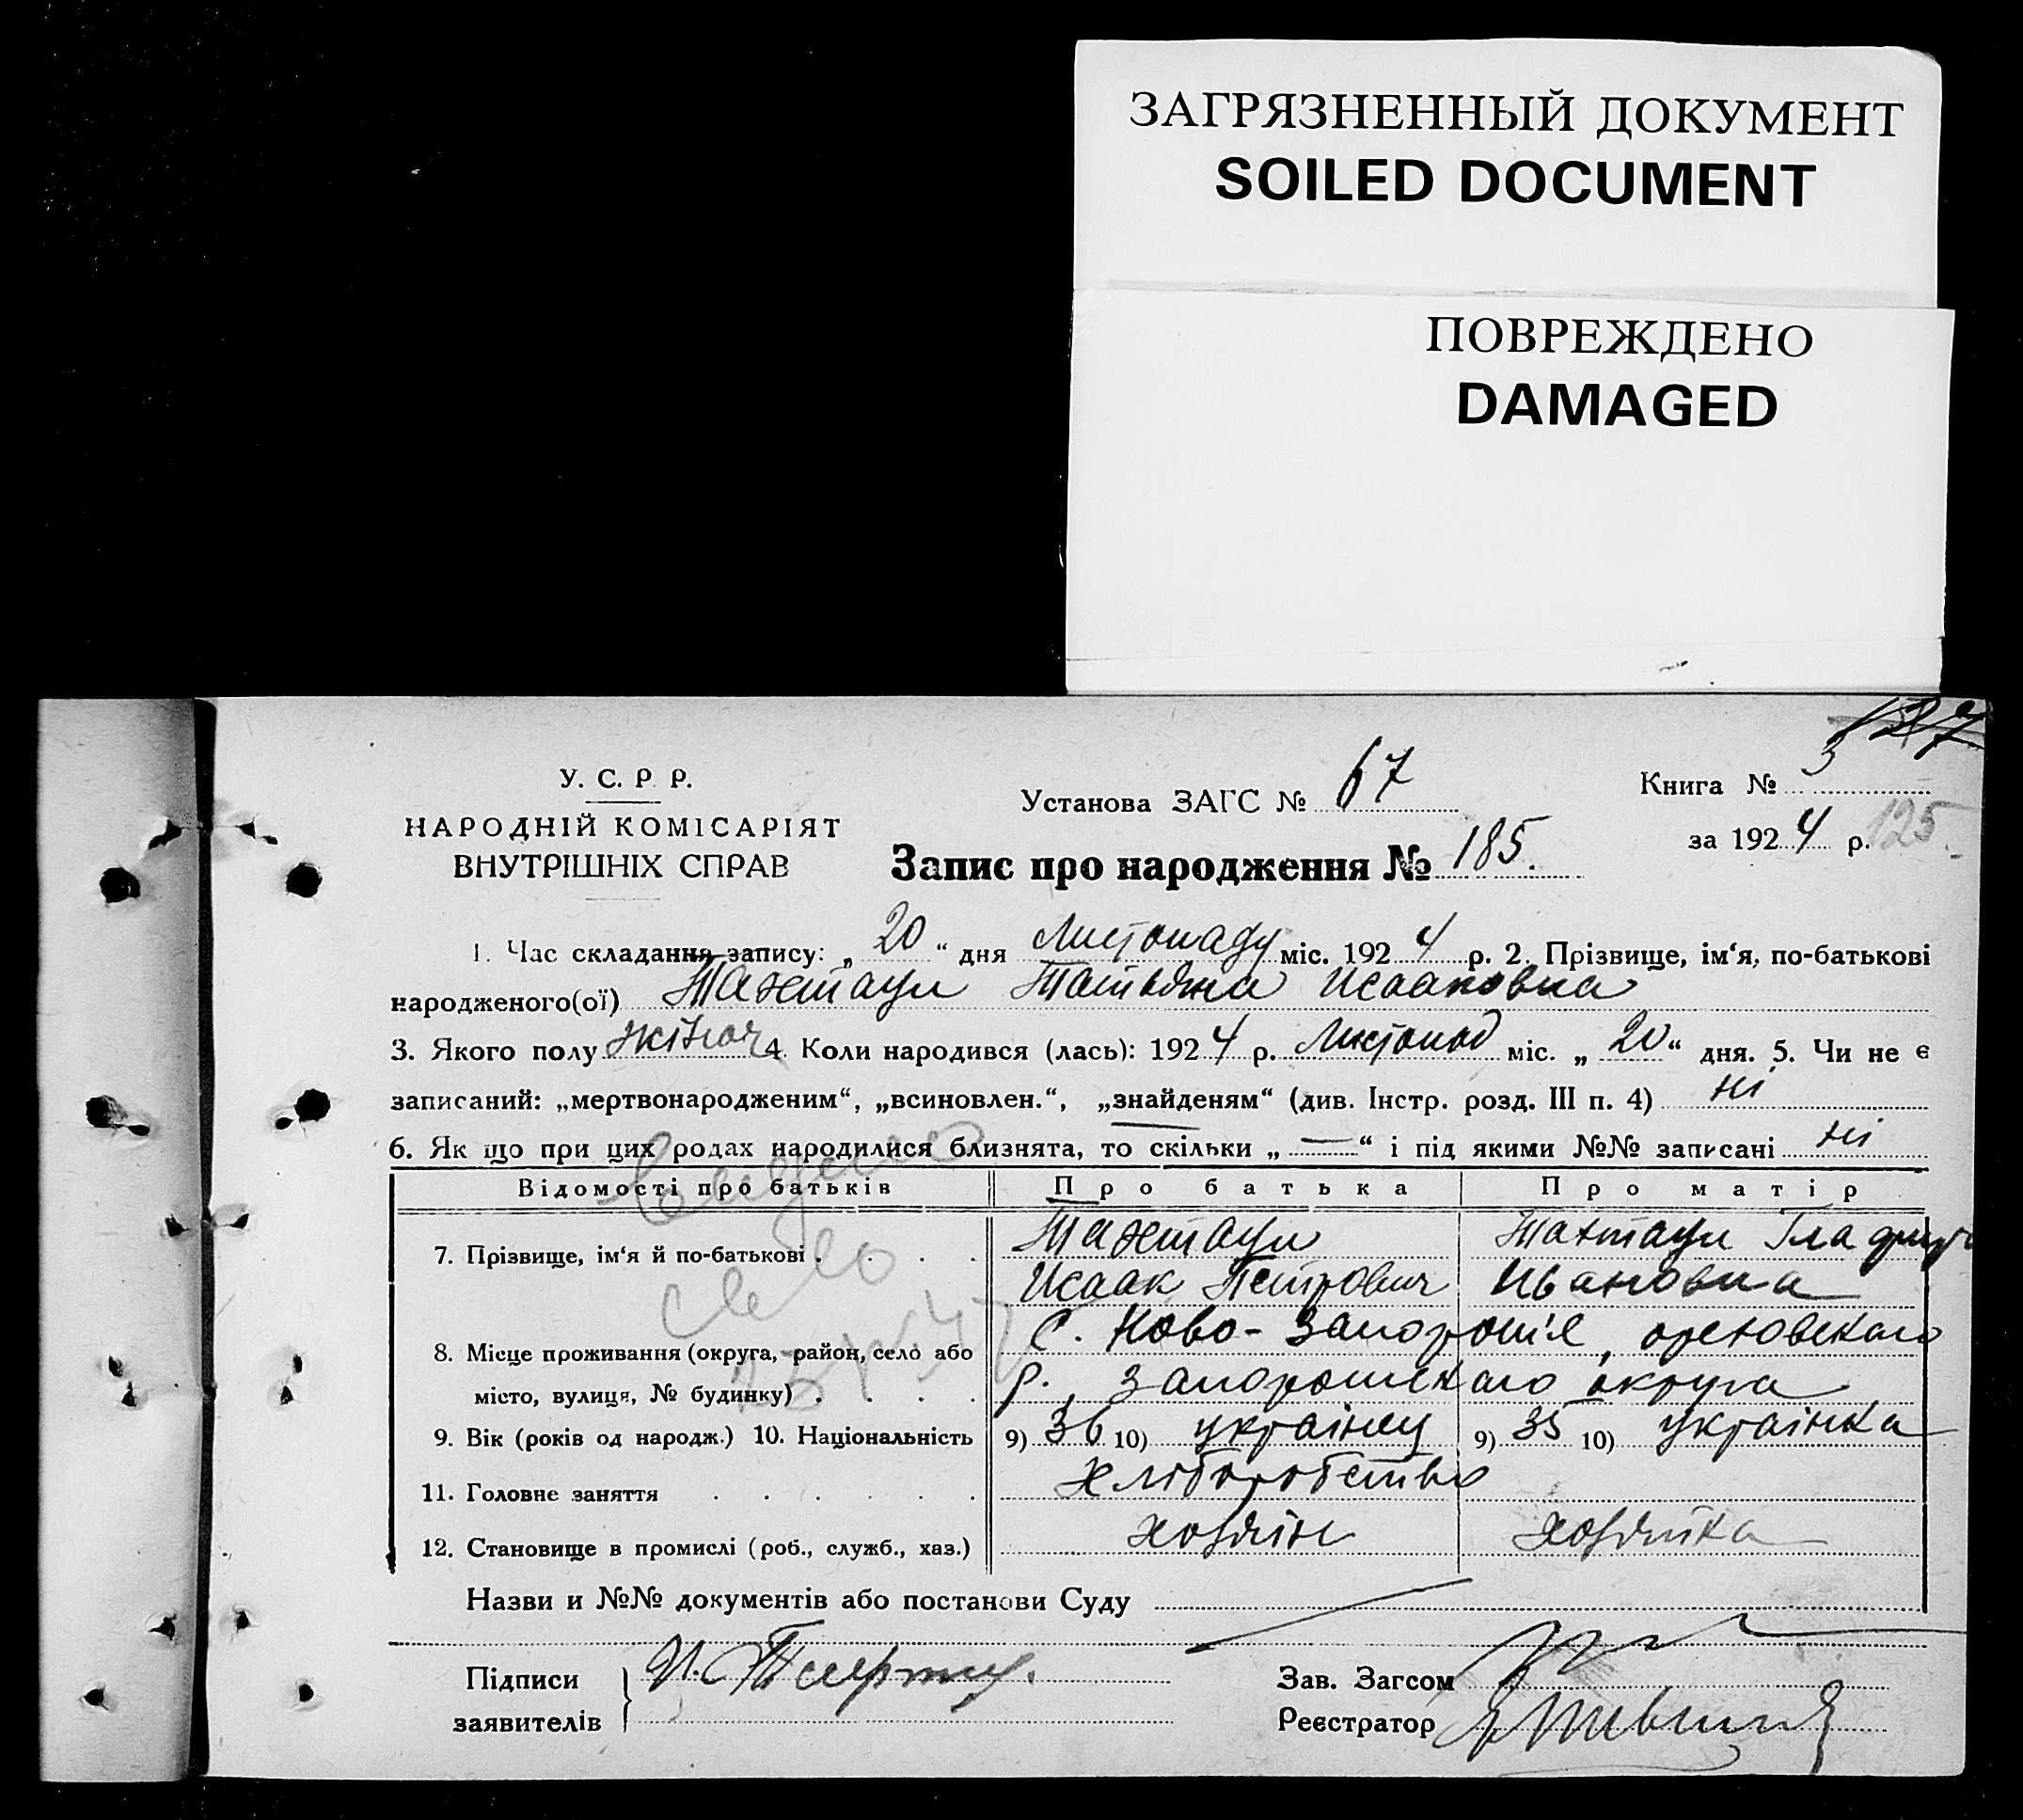 ЗАГРЯЗНЕННЫЙ ДОКУМЕНТ
SOILED DOCUMENT
ПОВРЕЖДЕНО
DAMAGED
127
У. С. Р. Р.
НАРОДНІЙ КОМІСАРІЯТ
ВНУТРІШНІХ СПРАВ
Установа ЗАГС № 67
Книга № 3
за 1924 р. 125
Запис про народження № 185.
1. Час складання запису: „20“ дня Листопаду міс. 1924 р. 2. Прізвище, ім‘я, по-батькові
народженого(ої) Тахтаул Татьяна Исааковна
3. Якого полу жіноч 4. Коли народився (лась): 1924 р. Листопад міс. „20“ дня. 5. Чи не є
записаний: „мертвонародженим“, „всиновлен.“, „знайденям“ (див. Інстр. розд. III п. 4) ні
6. Як що при цих родах народилися близнята, то скільки „—“ і під якими №№ записані ні
Відомості про батьків Про батька Про матір
7. Прізвище, ім‘я й по-батькові . . . . Тахтаул Тахтаул
Исаак Петрович Ивановна
8. Місце проживання (округа, район, село або С. Ново-Запорожіє, ореховскаго
місто, вулиця, № будинку) . . . . р., Запорожскаго округа
9. Вік (років од народж.) 10. Національність 9) 36 10) українец 9) 35 10) українка
11. Головне заняття . . . . . . Хліборобство
12. Становище в промислі (роб., служб., хаз.) хозяїн хозяйка
Назви и №№ документів або постанови Суду
Підписи
заявителів
Зав. Загсом
Реєстратор